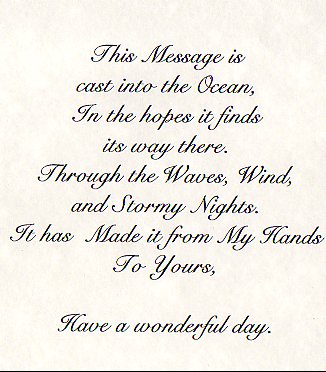 This Message is
cast into the Ocean,
In the hopes it finds
its way there.
Through the Waves, Wind,
and Stormy Nights.
It has Made it from My Hands
To Yours,
Have a wonderful day.